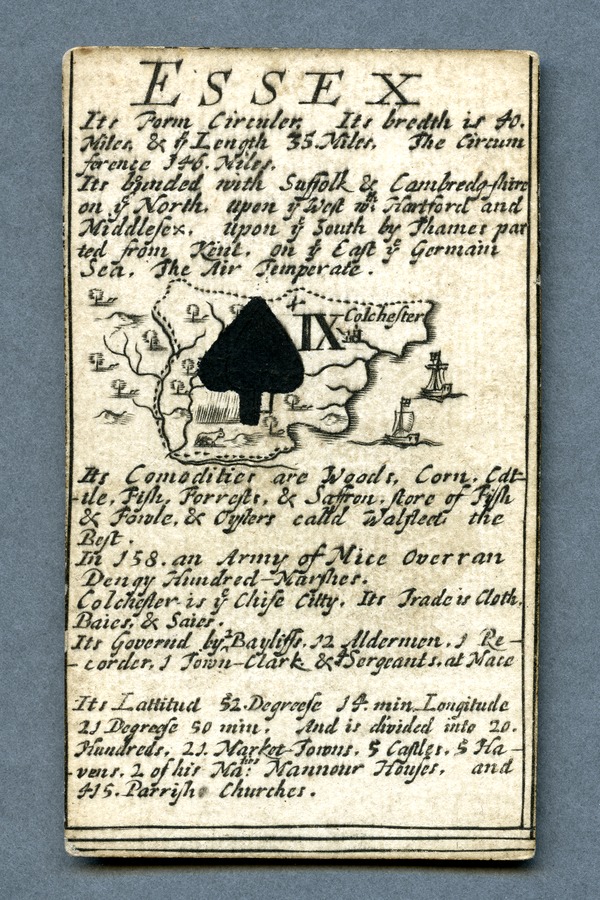 ESSEX
Its Form Circuler. Its bredth is 40.
Miles, & yᵉ Length 35. Miles. The Circum
ference 146. Miles.
Its bounded with Suffolk & Cambredg-shire
on yᵉ North. upon yᵉ West wᵗʰ Hartford and
Middlesex. upon yᵉ South by Thames par
ted from Kent. on yᵉ East yᵉ Germain
Sea. The Air Temperate.
IX Colchester
Its Comodities are Woods, Corn, Cat-
-tle, Fish, Forrests, & Saffron. store of Fish
& Fowle, & Oysters calld Walfleet the
Best.
In 158. an Army of Mice Overran
Dengy Hundred-Marshes.
Colchester is yᵉ Chife Citty. Its Trade is Cloth,
Baies, & Saies.
Its Governd by 2 Bayliffs, 12 Aldermen, 1 Re-
-corder, 1 Town-Clark & Sergeants, at Mace
Its Lattitud 52 Degreese 14. min. Longitude
21 Degreese 50 min. And is divided into 20.
Hundreds, 21. Market-Towns. 5 Castles. 5 Ha-
vens. 2 of his Maᵗⁱᵉˢ Mannour Houses. and
415. Parrish Churches.